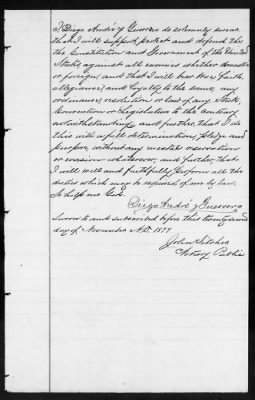 I Diego André y Guerrero do solemnly swear
that I will support, protect and defend the
the Constitution and Government of the United
States, against all enemies whether domestic
or foreign, and that I will bear true faith,
allegiance, and loyalty to the same, any
ordinance, resolution or law of any State,
Convention or Legislature to the contrary
notwithstanding, and further, that I do
this with a full determination, pledge and
purpose, without any mental reservation
or evasion whatsoever, and further, that
I will well and faithfully perform all the
duties which may be required of me by law.
So help me God.
Diego André y Guerrero
Sworn to and subscribed before this twenty second
day of November A.D. 1877
John
Notary Public